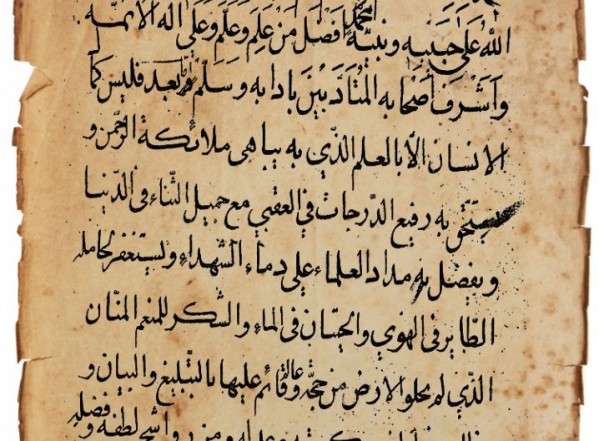 الله علی حبیبه ونبیه محمد افضل من علم وعلم وعلی اله الائمة
واشرف اصحابه المتادبین بادابه وسلم وبعد فلیس کما
الانسان الا بالعلم الذی به یباهی ملائکة الرحمن و
یستحق به رفیع الدرجات فی العقبی مع جمیل الثناء فی الدنیا
ویفضل به مداد العلماء علی دماء الشهداء ویستغفر لحامله
الطایر فی الهوی والحیتان فی الماء والشکر للمنعم المنان
الذی لم یخلو الارض من حجة وعالم قائم علیها بالتبلیغ والبیان و
لطفه وفضله